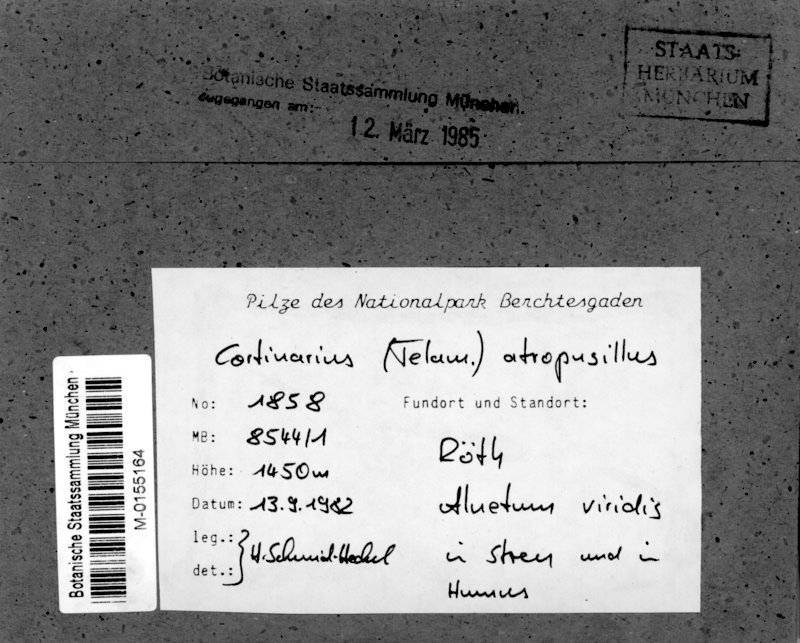 STAATS-
HERBARIUM
MÜNCHEN
Botanische Staatssammlung München.
zugegangen am:
12. März 1985
Pilze des Nationalpark Berchtesgaden
Cortinarius (Telam.) atropusillus
No: 1858
MB: 8544/1
Höhe: 1450m
Datum: 13.9.1982
leg.: } H. Schmid-Heckel
det.:
Fundort und Standort:
Röth
Alnetum viridis
in Streu und in
Humus
Botanische Staatssammlung München
M-0155164